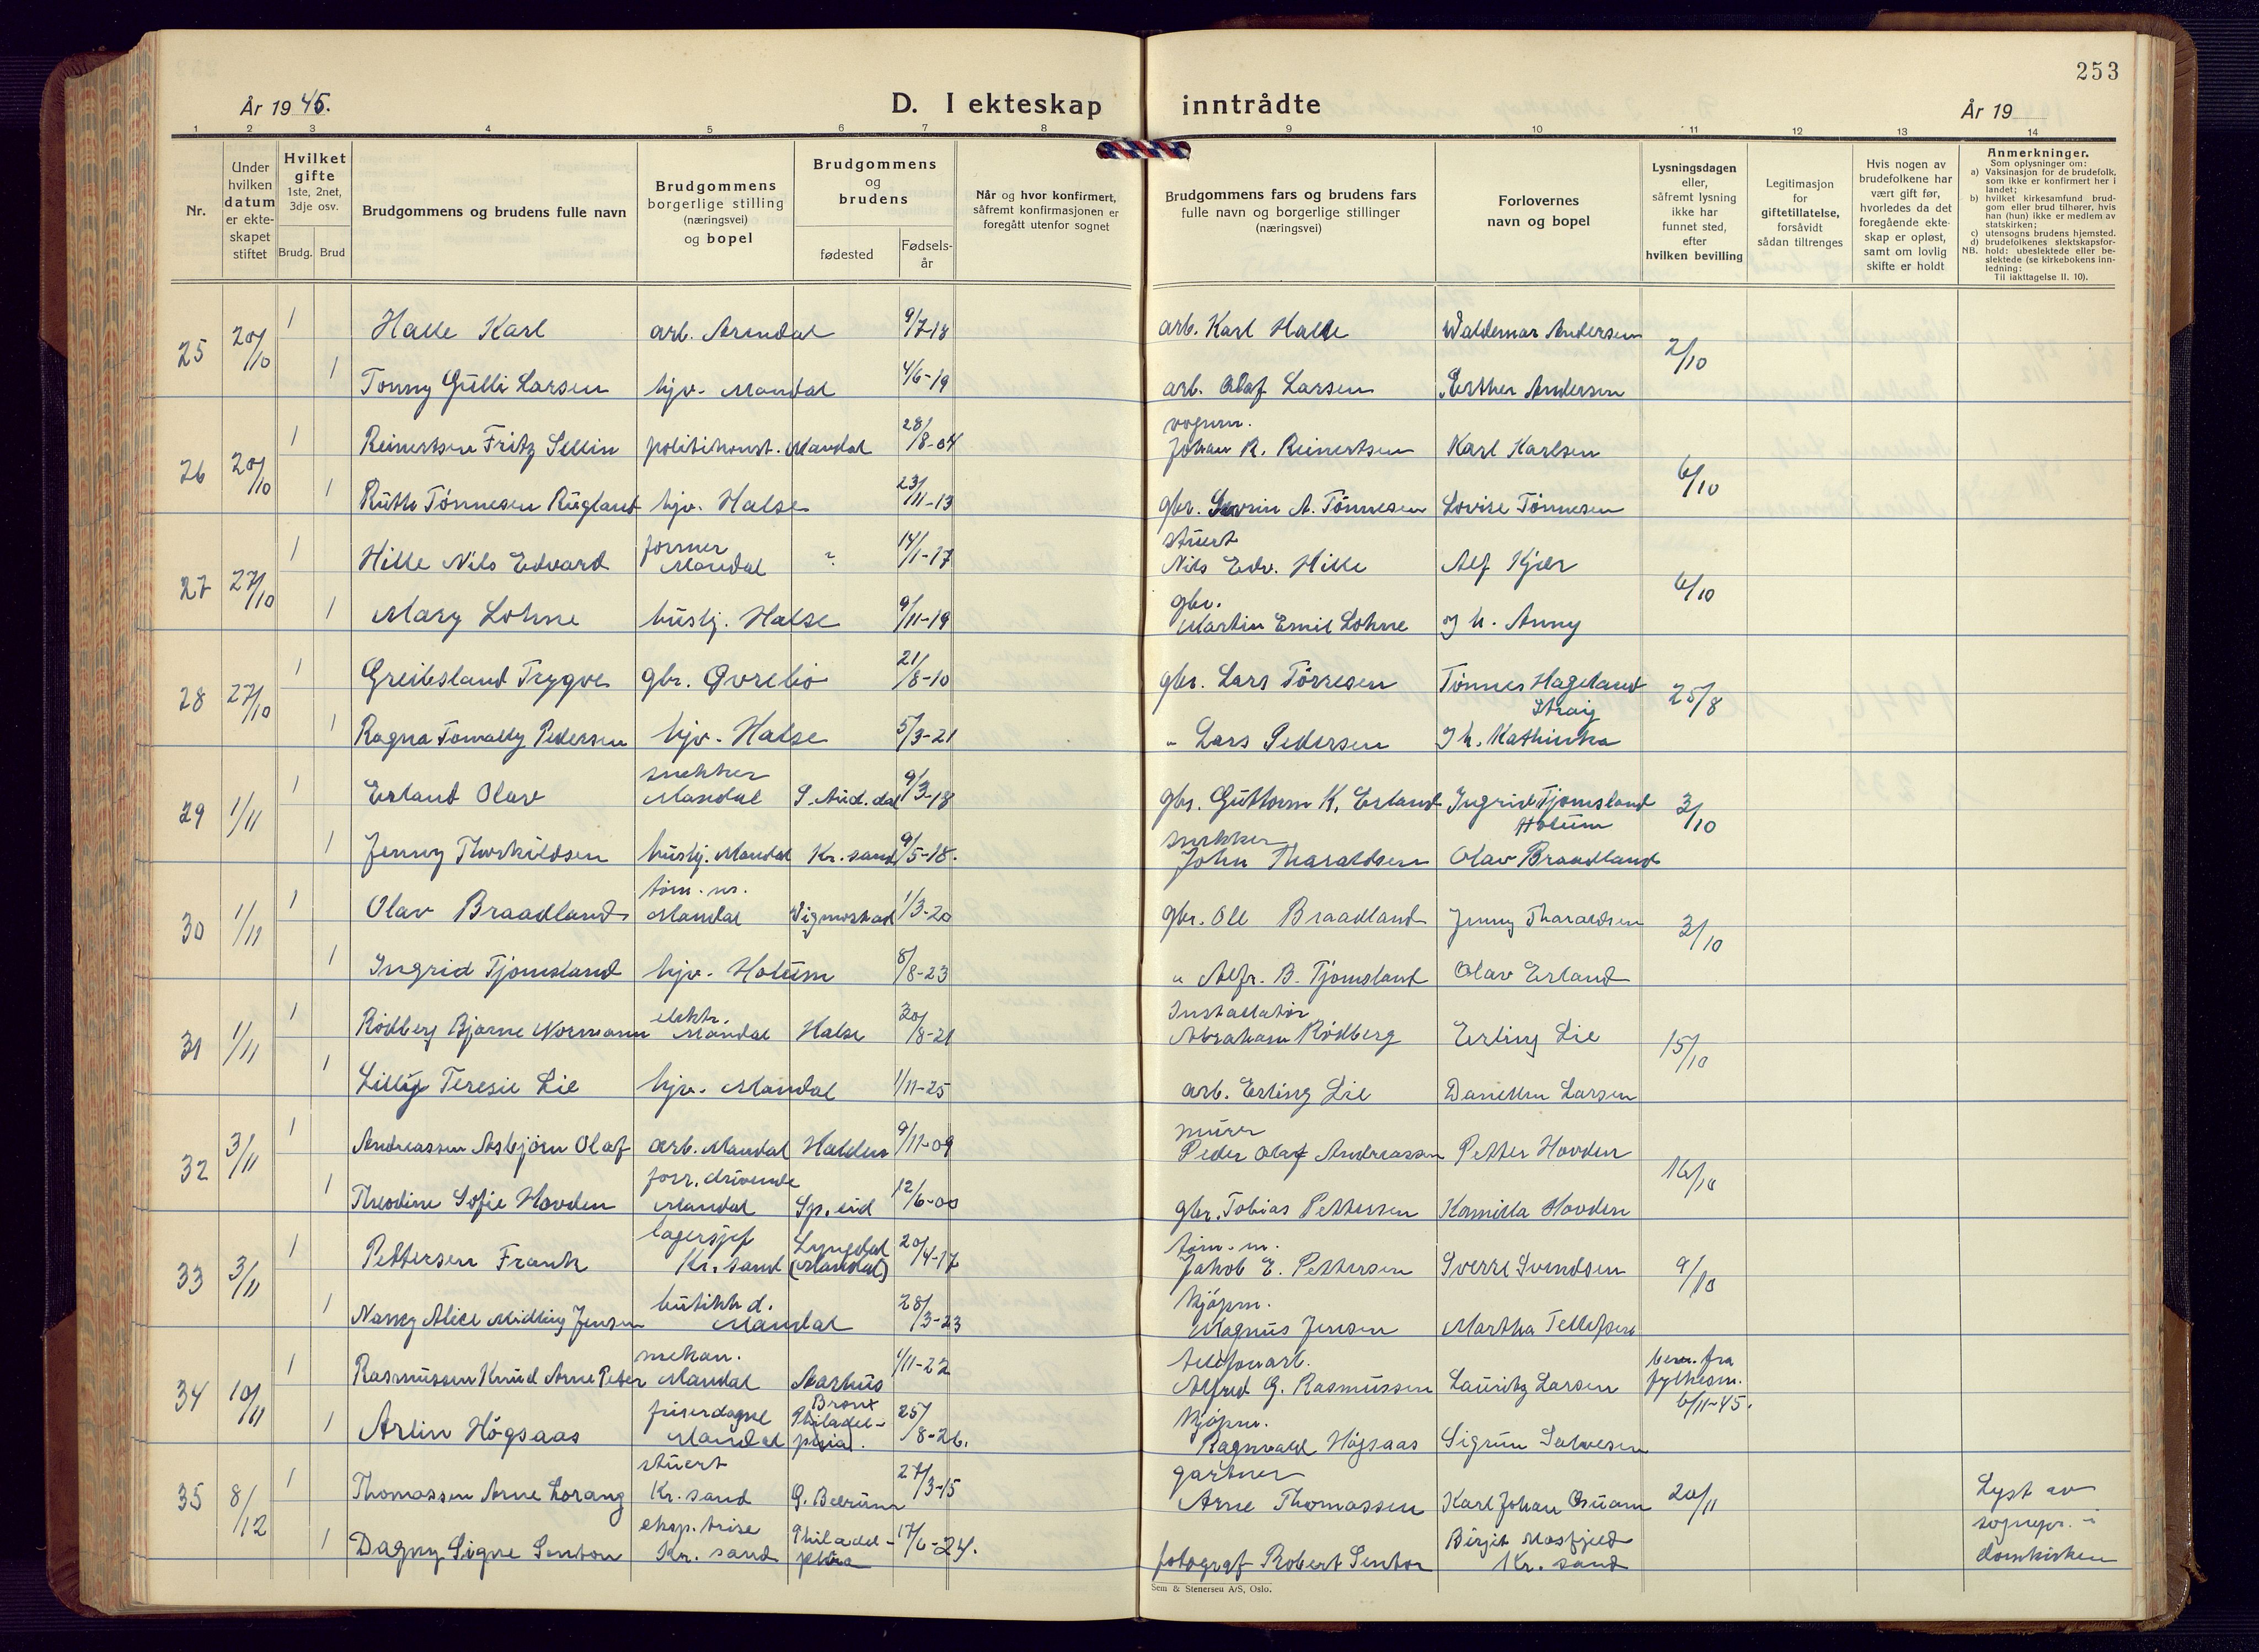 253
År 1945.
D. I ekteskap inntrådte
År 19
1 2 3 4 5 6 7 8 9 10 11 12 13 14
Nr.
Under hvilken datum er ekteskapet stiftet
Hvilket gifte 1ste, 2net, 3dje osv.
Brudg. Brud
Brudgommens og brudens fulle navn
Brudgommens borgerlige stilling (næringsvei) og bopel
Brudgommens og brudens
fødested
Fødselsår
Når og hvor konfirmert, såfremt konfirmasjonen er foregått utenfor sognet
Brudgommens fars og brudens fars fulle navn og borgerlige stillinger (næringsvei)
Forlovernes navn og bopel
Lysningsdagen eller, såfremt lysning ikke har funnet sted, efter hvilken bevilling
Legitimasjon for giftetillatelse, forsåvidt sådan tiltrenges
Hvis nogen av brudefolkene har vært gift før, hvorledes da det foregående ekteskap er opløst, samt om lovlig skifte er holdt
Anmerkninger.
Som oplysninger om:
a) Vaksinasjon for de brudefolk, som ikke er konfirmert her i landet;
b) hvilket kirkesamfund brudgom eller brud tilhører, hvis han (hun) ikke er medlem av statskirken;
c) utensogns brudens hjemsted.
d) brudefolkenes slektskapsforhold: ubeslektede eller beslektede (se kirkebokens innledning:
NB. Til iakttagelse II. 10).
25 20/10 1 Halle Karl arb. Arendal 9/7-18 arb. Karl Halle Waldemar Andersen 2/10
1 Tonny Gulli Larsen hjv. Mandal 4/6-19 arb. Olaf Larsen Esther Andersen
26 20/10 1 Reinertsen Fritz Sellin politikonst. Mandal 28/8-04 vognm. Johan R. Reinertsen Karl Karlsen 6/10
1 Ruth Tønnesen Rugland hjv. Halse 23/11-13 gbr. Severin A. Tønnesen Lovise Tønnesen
27 27/10 1 Hille Nils Edvard former Mandal ? 14/1-17 stuert Nils Edv. Hille Alf Kjær 6/10
1 Mary Lohne hushj. Halse 9/11-19 gbr. Martin Emil Lohne og h. Anny
28 27/10 1 Greibesland Trygve gbr. Øvrebø 21/8-10 gbr. Lars Tørresen Tønnes Hageland 25/8
1 Ragna Tomally Pedersen hjv. Halse 5/3-21 " Lars Pedersen og h. Kathinka
29 1/11 1 Erland Olav snekker Mandal S. Aud.dal 9/3-18 gbr. Guttorm K. Erland Ingrid Tjomsland Holum 3/10
1 Jenny Thorkildsen hushj. Mandal Kr.sand 9/5-18. snekker John Tharaldsen Olav Braadland
30 1/11 1 Olav Braadland tøm. m. Mandal Vigmostad 1/3-20 gbr. Ole Braadland Jenny Tharaldsen 3/10
1 Ingrid Tjomsland hjv. Holum 8/8-23 " Alfr. B. Tjomsland Olav Erland
31 1/11 1 Rødberg Bjarne Normann elektr. Mandal Halse 30/8-21 Installatør Abraham Rødberg Erling Lie 15/10
1 Lilly Teresie Lie hjv. Mandal 1/11-25 arb. Erling Lie Daniellen Larsen
32 3/11 1 Andreassen Asbjørn Olaf arb. Mandal Halden 9/11-09 murer Peder Olaf Andreassen Petter Hovden 16/10
1 Theodine Sofie Hovden forr.drivende Mandal Sp.eid 12/6-00 gbr. Tobias Pettersen Kamilla Hovden
33 3/11 1 Pettersen Frank lagersjef Kr.sand Lyngdal (Mandal) 20/4-17 tøm. m. Jakob E. Pettersen Sverre Svendsen 9/10
1 Nancy Alice Midling Jensen butikkd. Mandal 28/3-23 kjøpm. Magnus Jensen Martha Tellefsen
34 10/11 1 Rasmussen Knud Arne Peter mekan. Mandal Aarhus 1/11-22 telefonarb. Alfred G. Rasmussen Lauritz Larsen bev. fra fylkesm. 6/11-45.
1 Arlin Høgsaas friserdame Mandal Bronx Philadelphia). 25/8-26. kjøpm. Ragnvald Høgsaas Sigrun Salvesen
35 8/12 1 Thomassen Arne Lorang stuert Kr.sand Ø. Bærum 27/3-15 gartner Arne Thomassen Karl Johan Osuam 20/11 Lyst av sognepr. i domkirken
1 Dagny Signe Senton eksp.trise Kr. sand Philadelphia 17/6-24. fotograf Robert Sentor Birgit Mosfjeld Kr. sand
Sem & Stenersen A/S, Oslo.